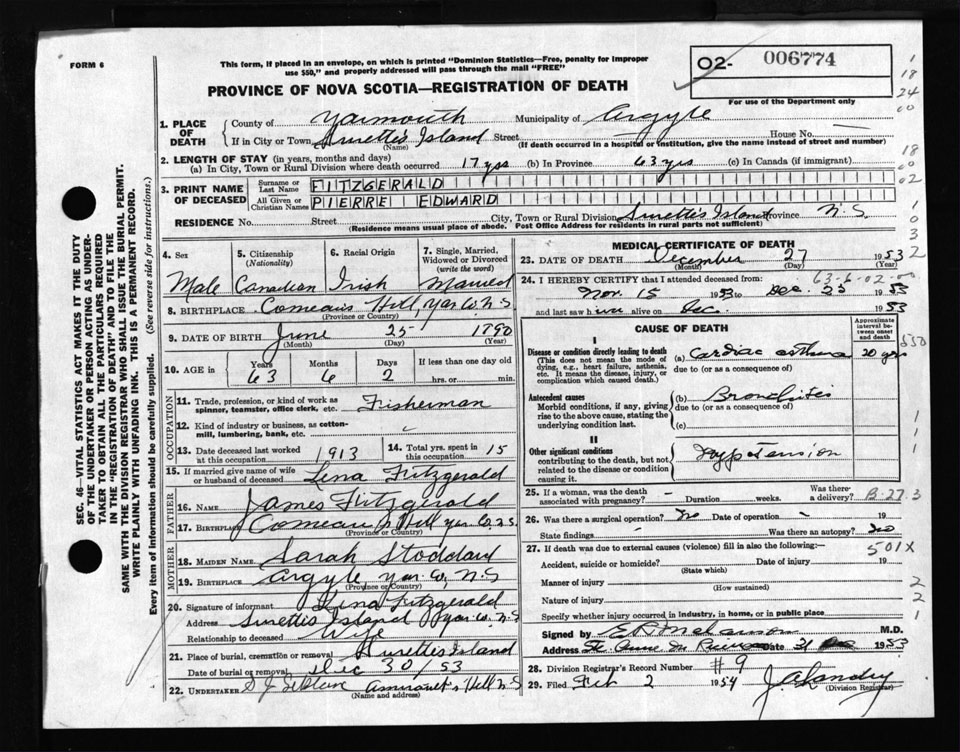 FORM 6
This form, if placed in an envelope, on which is printed "Dominion Statistics—Free, penalty for improper
use $50," and properly addressed will pass through the mail "FREE"
O2- 006774
For use of the Department only
PROVINCE OF NOVA SCOTIA—REGISTRATION OF DEATH
1. PLACE OF DEATH
County of Yarmouth Municipality of Argyle
If in City or Town Surettes Island Street House No. —
(Name) (If death occurred in a hospital or institution, give the name instead of street and number)
2. LENGTH OF STAY (in years, months and days)
(a) In City, Town or Rural Division where death occurred 17 yrs (b) In Province 63 yrs (c) In Canada (if immigrant)
3. PRINT NAME OF DECEASED
Surname or Last Name FITZGERALD
All Given or Christian Names PIERRE EDWARD
RESIDENCE No. Street City, Town or Rural Division Surettes Island Province N.S.
(Residence means usual place of abode. Post Office Address for residents in rural parts not sufficient)
4. Sex
Male
5. Citizenship (Nationality)
Canadian
6. Racial Origin
Irish
7. Single, Married, Widowed or Divorced (write the word)
Married
8. BIRTHPLACE Comeau's Hill, Yar. Co. N.S
(Province or Country)
9. DATE OF BIRTH June 25 1890
(Month) (Day) (Year)
10. AGE in Years 63 Months 6 Days 2 If less than one day old hrs. or min.
OCCUPATION
11. Trade, profession, or kind of work as spinner, teamster, office clerk, etc. Fisherman
12. Kind of industry or business, as cotton-mill, lumbering, bank, etc.
13. Date deceased last worked at this occupation 1913
14. Total yrs. spent in this occupation 15
15. If married give name of wife or husband of deceased Lena Fitzgerald
FATHER
16. NAME James Fitzgerald
17. BIRTHPLACE Comeau's Hill Yar. Co. N.S.
(Province or Country)
MOTHER
18. MAIDEN NAME Sarah Stoddard
19. BIRTHPLACE Argyle, Yar. Co, N.S
(Province or Country)
20. Signature of informant Lena Fitzgerald
Address Surettes Island Yar. Co. N.S
Relationship to deceased Wife
21. Place of burial, cremation or removal Surettes Island
Date of burial or removal Dec 30/53
22. UNDERTAKER S J LeBlanc Amirault's Hill N.S
(Name and address)
MEDICAL CERTIFICATE OF DEATH
23. DATE OF DEATH December 27 1953
(Month) (Day) (Year)
63-6-02-00
24. I HEREBY CERTIFY that I attended deceased from:
Nov. 15 1953 to Dec. 23 1953
and last saw him alive on Dec. 1953
CAUSE OF DEATH
Approximate interval between onset and death
I
Disease or condition directly leading to death
(This does not mean the mode of dying, e.g., heart failure, asthenia, etc. It means the disease, injury, or complication which caused death.)
(a) Cardiac asthma 20 yrs
due to (or as a consequence of)
Antecedent causes
Morbid conditions, if any, giving rise to the above cause, stating the underlying condition last.
(b) Bronchitis
due to (or as a consequence of)
(c)
II
Other significant conditions
contributing to the death, but not related to the disease or condition causing it.
Hypotension
25. If a woman, was the death associated with pregnancy? - Duration weeks. Was there a delivery?
B-27.3
26. Was there a surgical operation? no Date of operation - 19
State findings - Was there an autopsy? no
27. If death was due to external causes (violence) fill in also the following:—
501X
Accident, suicide or homicide? Date of injury 19
(State which)
Manner of injury
(How sustained)
Nature of injury
Specify whether injury occurred in industry, in home, or in public place
Signed by M.D.
Address Ste. Anne du Ruisseau Date 31 Dec 1953
28. Division Registrar's Record Number #9
29. Filed Feb 2 1954 J.A. Landry
(Division Registrar)
SEC. 46—VITAL STATISTICS ACT MAKES IT THE DUTY
OF THE UNDERTAKER OR PERSON ACTING AS UNDER-
TAKER TO OBTAIN ALL THE PARTICULARS REQUIRED
IN THE "REGISTRATION OF DEATH" AND TO FILE THE
SAME WITH THE DIVISION REGISTRAR WHO SHALL ISSUE THE BURIAL PERMIT.
WRITE PLAINLY WITH UNFADING INK. THIS IS A PERMANENT RECORD.
Every item of information should be carefully supplied. (See reverse side for instructions.)
1
18
24
00
18
60
02
1
0
3
2
550
1
1
1
2
2
1